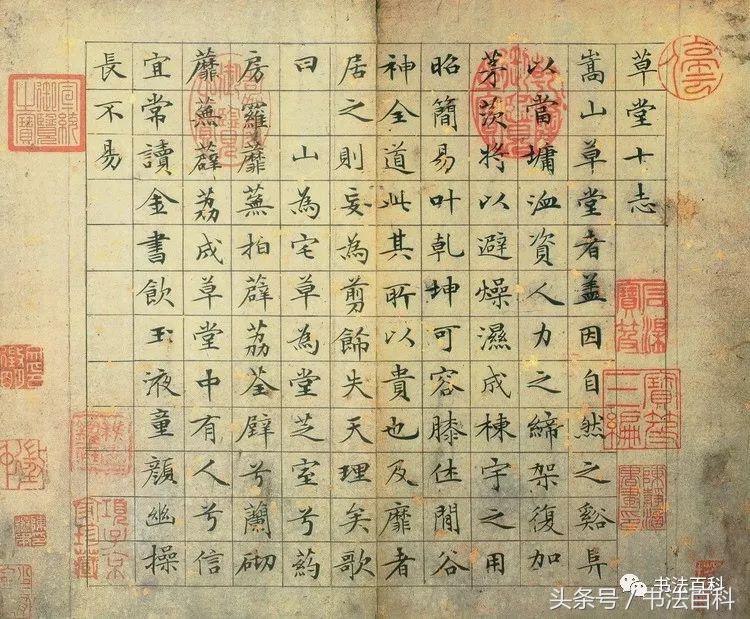 草堂十志
嵩山草堂者盖因自然之谿阜
以當墉洫資人力之締架復加
茅茨將以避燥濕成棟宇之用
昭簡易叶乾坤可容膝休閒谷
神全道此其所以貴也及靡者
居之則妄為剪飾失天理矣歌
曰 山為宅草為堂芝室兮葯
房羅蘼蕪拍薜荔荃壁兮蘭砌
蘼蕪薜荔成草堂中有人兮信
宜常讀金書飲玉液童顏幽操
長不易
宣統御覽之寶
石渠寶笈
寶笈三編
項子京家珍藏
书法百科
头条号/书法百科